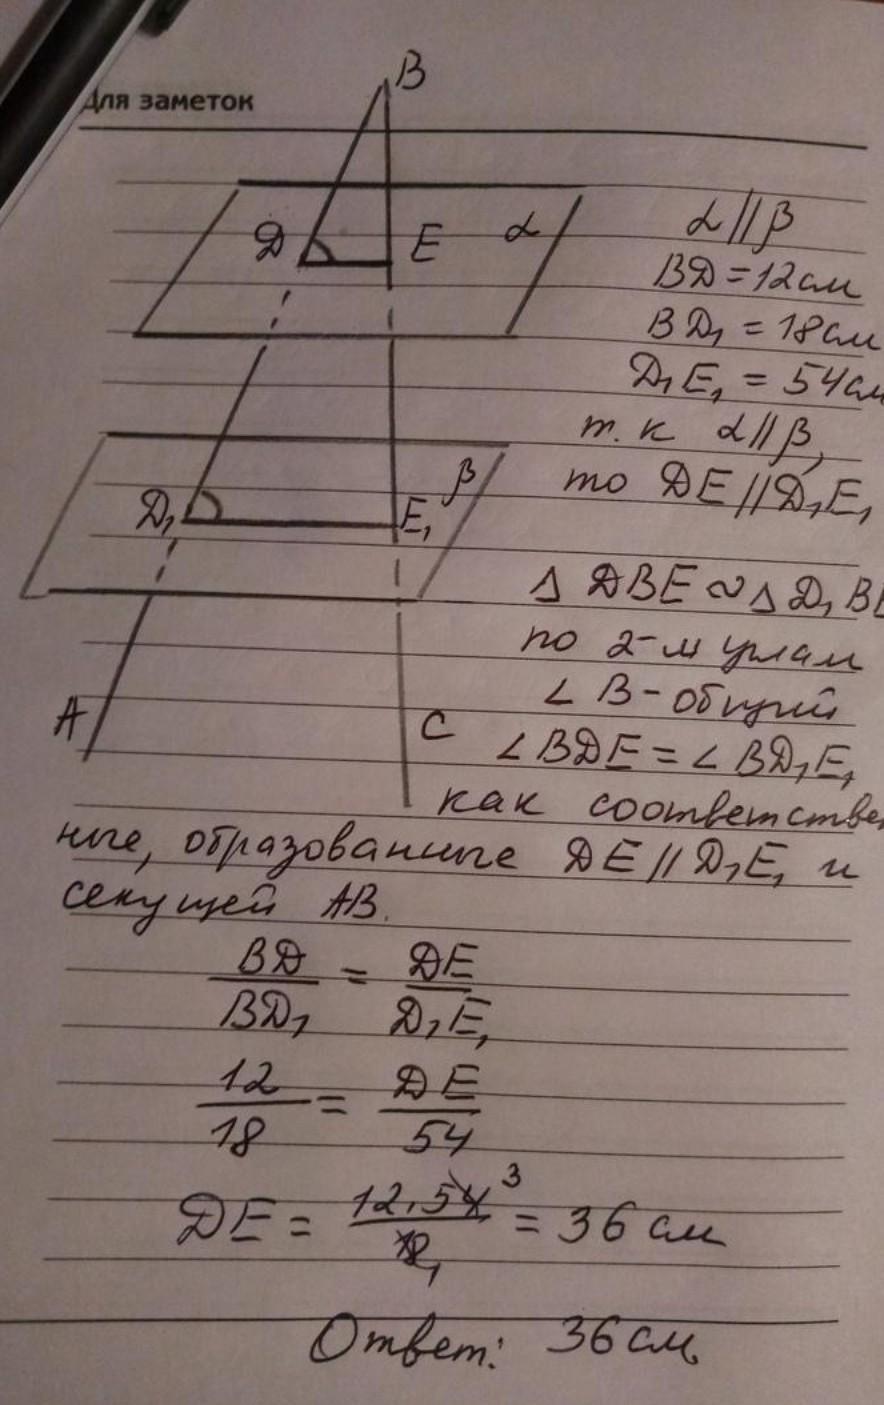 Для заметок
B
D E α
α || β
BD = 12 см
BD₁ = 18 см
D₁E₁ = 54 см
т.к α || β,
то DE || D₁E₁
D₁ E₁ β
Δ DBE ∾ Δ D₁BE
по 2-м углам
∠ B - общий
A C
∠ BDE = ∠ BD₁E₁
как соответстве
ные, образованные DE || D₁E₁ и
секущей AB.
BD/BD₁ = DE/D₁E₁
12/18 = DE/54
DE = 12 · 54 3/18 1 = 36 см
Ответ: 36 см.